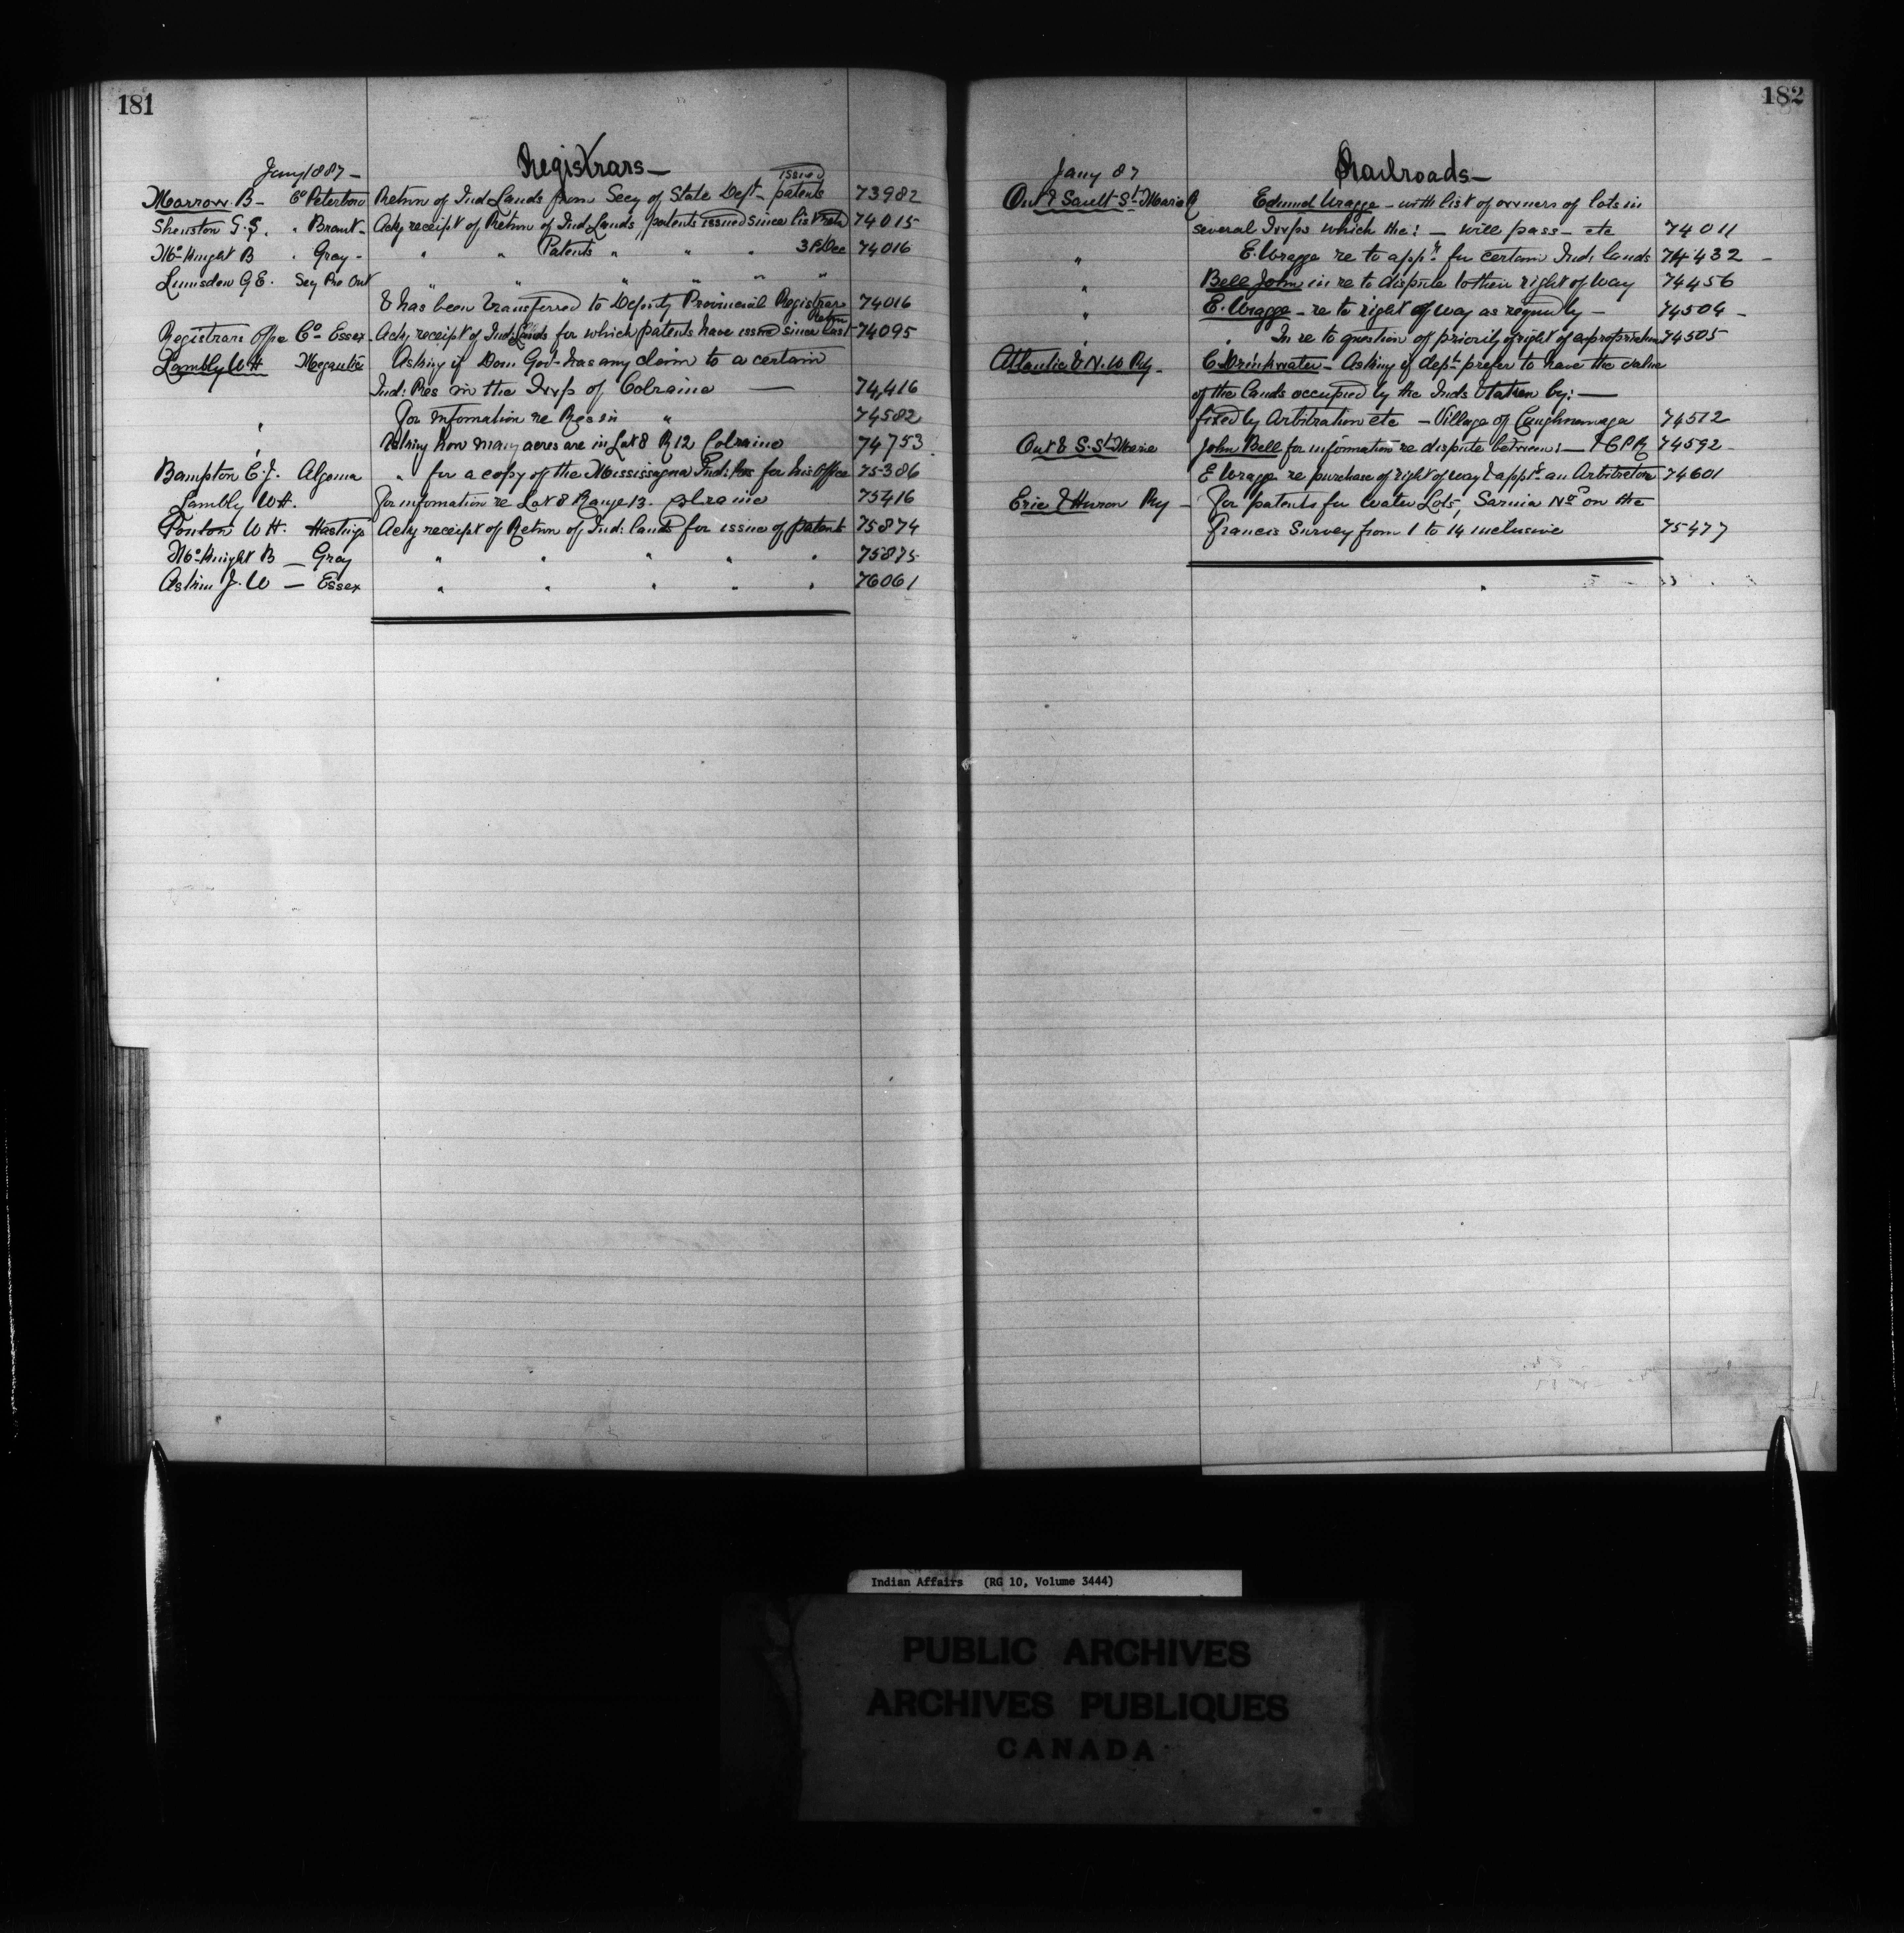 181
Jany 1887 -
Registrars -
issued
Marrow. B - Co Peterboro Return of Ind Lands from Secy of State Dept - patents 73982
Shenston G.S. " Brant - Ackg receipt of Return of Ind Lands patents issued since list 74015
McKnight B " Gray - " " Patents " " " 31 Dec 74016
Lumsden G E. Sey Pro Ont " " " " "
& has been transferred to Deputy Provincial Registrar 74016
Return
Registrars Office Co Essex - Ackg receipt of Ind: Lands for which patents have issued since last 74095
Lambly W H Megantic Asking if Dom Govt has any claim to a certain
Ind: Res in the Twp of Colraine — 74,416
" For infomation re Res in " 74582
" Asking how many acres are in Lot 8 R 12 Colraine 74753
Bampton C. J. Algoma " for a copy of the Mississagua Ind: Res for his Office 75386
Lambly W H. For infomation re Lot 8 Range 13. Colraine 75416
Ponton W H. Hastings Ackg receipt of Return of Ind: lands for issue of patents 75874
McKnight B — Gray " " " " " 75875
Askin J. W — Essex " " " " " 76061
182
Jany 87
Railroads -
Ont & Sault St Marie R Edmund Wragge - with list of owners of lots in
several Twps which the: — will pass - etc 74011
" E. Wragge re to appn for certain Ind: lands 74432 -
" Bell John in re to dispute to their right of way 74456
" E. Wragge - re to right of way as regards by - 74504 -
" In re to question of priority of right of expropriation 74505
Atlantic & N. W Ry - C Drinkwater - Asking if dept prefer to have the value
of the lands occupied by the Inds & taken by: —
fixed by Arbitration etc - Village of Caughnawaga 74512
Ont & S. St Marie John Bell for information re dispute between: — & C P R 74592 -
E Wragge re purchase of right of way & appt an Arbitrator 74601
Erie & Huron Ry - For patents for Water Lots, Sarnia Nos on the
Francis Survey from 1 to 14 inclusive 75477
Indian Affairs (RG 10, Volume 3444)
PUBLIC ARCHIVES
ARCHIVES PUBLIQUES
CANADA